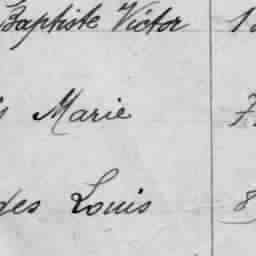 Baptiste Victor
Marie
des Louis